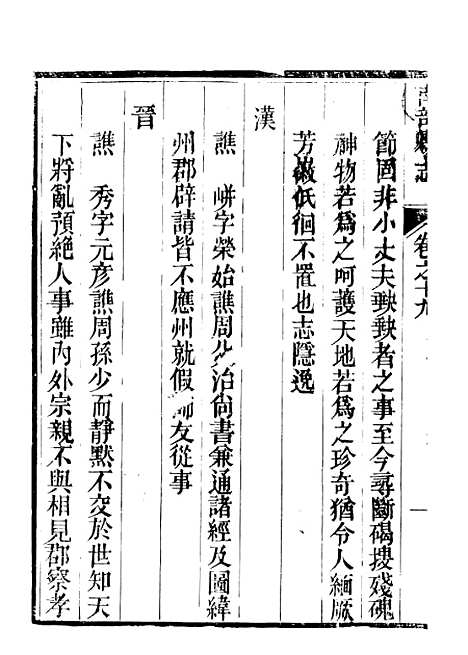 南部縣志
卷之十九
一
節固非小丈夫㪍㪍者之事至今尋斷碣搜殘碑
神物若爲之呵護天地若爲之珍奇猶令人緬厥
芳徽低徊不置也志隱逸
漢
譙 𡶴字榮始譙周父治尙書兼通諸經及圖緯
州郡辟請皆不應州就假師友從事
晉
譙 秀字元彥譙周孫少而靜默不交於世知天
下將亂預絶人事雖內外宗親不與相見郡察孝